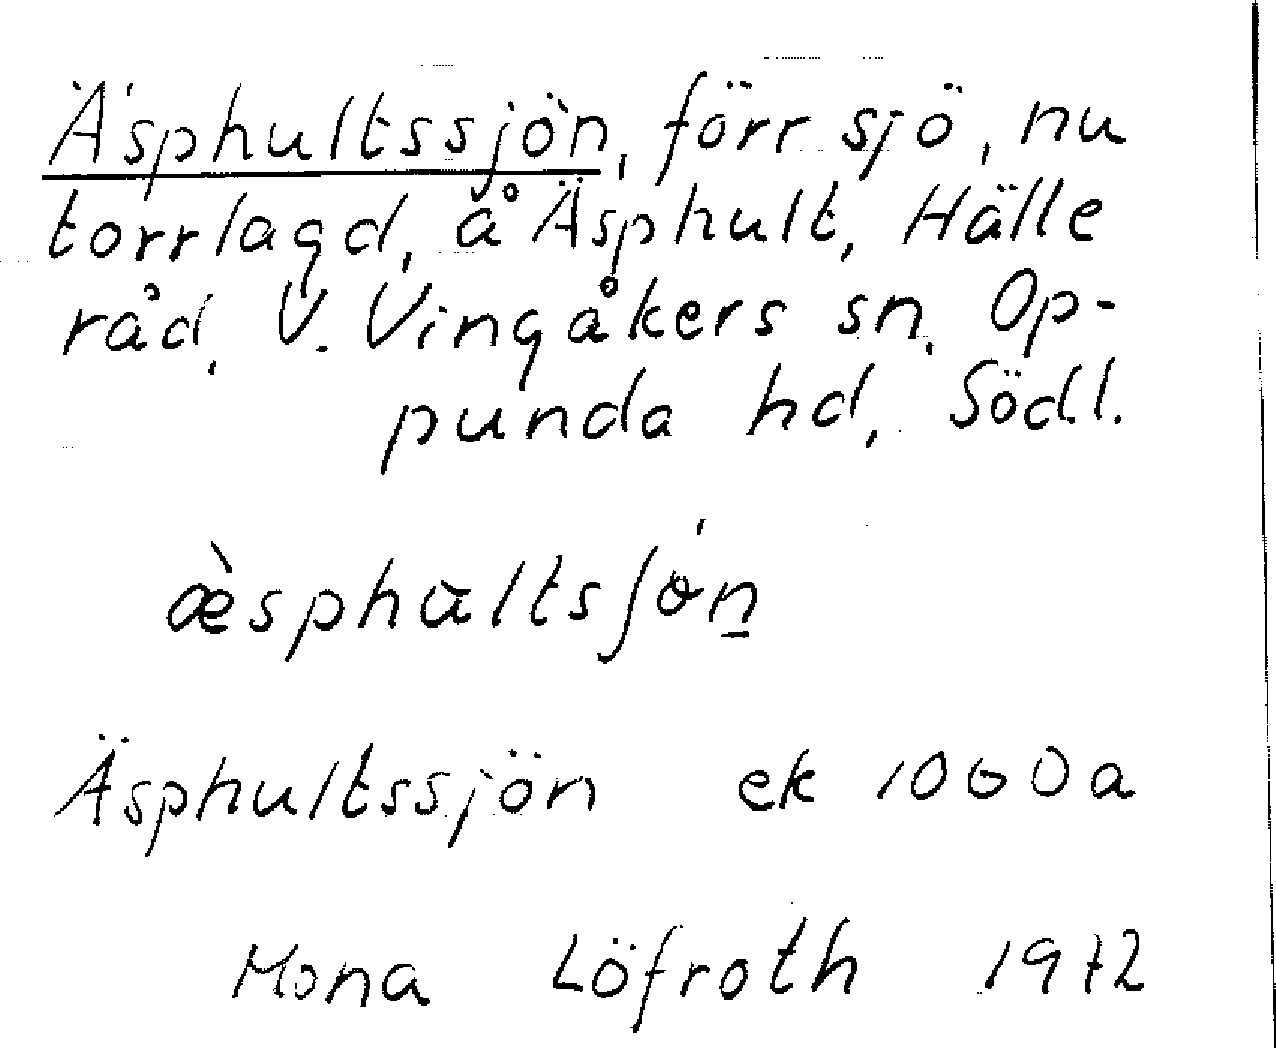 Äsphultssjön, förr sjö, nu
torrlagd, å Äsphult, Hälle
råd, V. Vingåkers sn, Op-
punda hd, Södl.
æ̀sphultsʃø̀n̲
Äsphultssjön ek 1000a
Mona Löfroth 1972